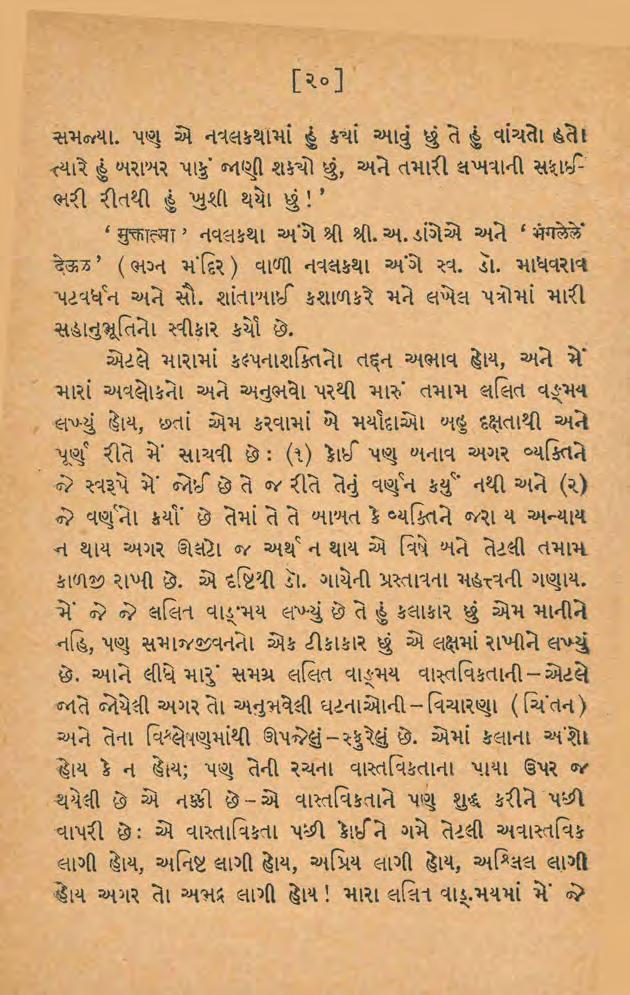 [૨૦]
સમજ્યા. પણ એ નવલકથામાં હું કયાં આવું છું તે હું વાંચતો હતો
ત્યારે હું બરાબર પાકું જાણી શકયો છું, અને તમારી લખવાની સફાઈ-
ભરી રીતથી હું ખુશી થયો છું!'
‘मुक्तात्मा’ નવલકથા અંગે શ્રી શ્રી. અ. ડાંગેએ અને ‘भंगलेलें
देऊळ’ (ભગ્ન મંદિર) વાળી નવલકથા અંગે સ્વ. ડૉ. માધવરાવ
પટવર્ધન અને સૌ. શાંતાબાઈ કશાળકરે મને લખેલ પત્રોમાં મારી
સહાનુભૂતિનો સ્વીકાર કર્યો છે.
એટલે મારામાં કલ્પનાશક્તિનો તદ્દન અભાવ હોય, અને મેં
મારાં અવલોકનો અને અનુભવો પરથી મારું તમામ લલિત વઙ્મય
લખ્યું હોય, છતાં એમ કરવામાં બે મર્યાદાઓ બહુ દક્ષતાથી અને
પૂર્ણ રીતે મેં સાચવી છે: (૧) કોઈ પણ બનાવ અગર વ્યક્તિને
જે સ્વરૂપે મેં જોઈ છે તે જ રીતે તેનું વર્ણન કર્યું નથી અને (૨)
જે વર્ણનો કર્યાં છે તેમાં તે તે બાબત કે વ્યક્તિને જરા ય અન્યાય
ન થાય અગર ઊલટો જ અર્થ ન થાય એ વિષે બને તેટલી તમામ
કાળજી રાખી છે. એ દૃષ્ટિથી ડૉ. ગાયેની પ્રસ્તાવના મહત્ત્વની ગણાય.
મેં જે જે લલિત વાઙ્મય લખ્યું છે તે હું કલાકાર છું એમ માનીને
નહિ, પણ સમાજજીવનનો એક ટીકાકાર છું એ લક્ષમાં રાખીને લખ્યું
છે. આને લીધે મારું સમગ્ર લલિત વાઙ્મય વાસ્તવિકતાની – એટલે
જાતે જોયેલી અગર તો અનુભવેલી ઘટનાઓની – વિચારણા (ચિંતન)
અને તેના વિશ્લેષણમાંથી ઊપજેલું – સ્ફુરેલું છે. એમાં કલાના અંશો
હોય કે ન હોય; પણ તેની રચના વાસ્તવિકતાના પાયા ઉપર જ
થયેલી છે એ નક્કી છે – એ વાસ્તવિકતાને પણ શુદ્ધ કરીને પછી
વાપરી છે: એ વાસ્તાવિકતા પછી કોઈને ગમે તેટલી અવાસ્તવિક
લાગી હોય, અનિષ્ટ લાગી હોય, અપ્રિય લાગી હોય, અશ્લિલ લાગી
હોય અગર તો અભદ્ર લાગી હોય! મારા લલિત વાઙ્.મયમાં મેં જે